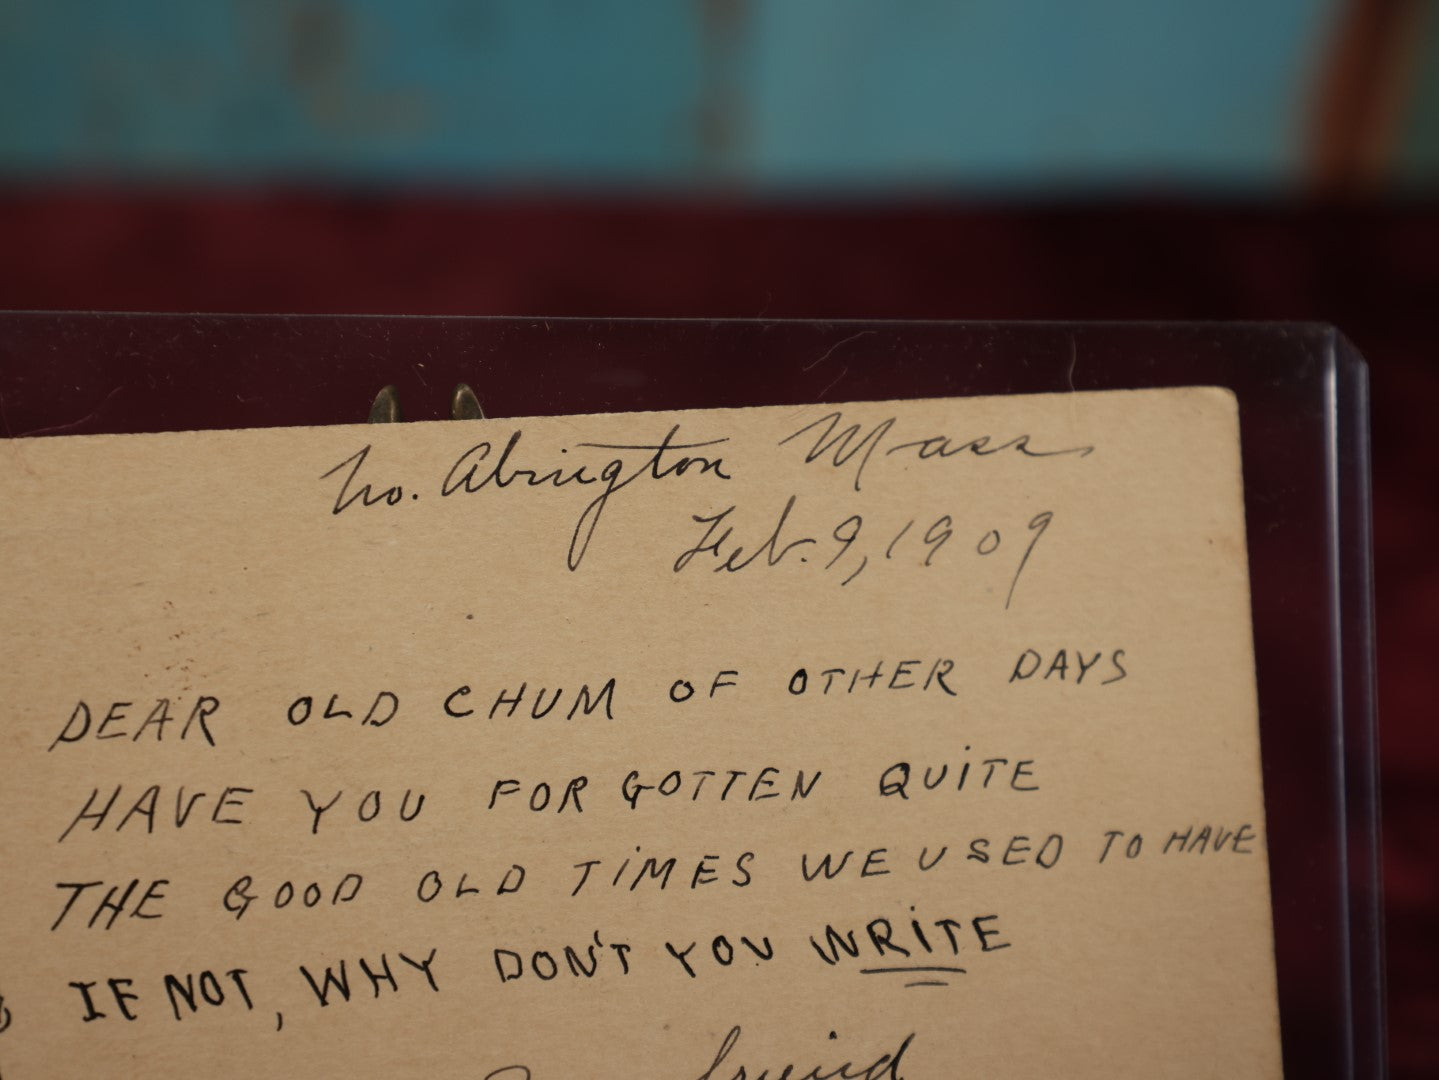 No. Abington Mass
Feb. 9, 1909
DEAR OLD CHUM OF OTHER DAYS
HAVE YOU FORGOTTEN QUITE
THE GOOD OLD TIMES WE USED TO HAVE
IF NOT, WHY DON'T YOU WRITE
friend